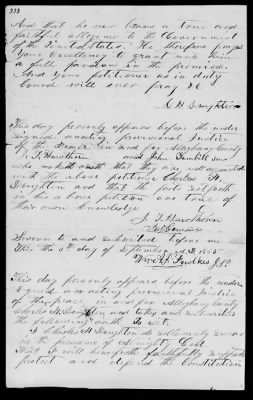 And that he now bears a true and
faithful allegiance to the Government
of the United States. He therefore prays
Your Excellency to grant unto him
a full pardon in the premises.
And your petitioner as in duty
bound will ever pray &c
C. H. Doughton
This day personly appears before the under
signed an acting provisional Justice
of the Peace in and for Alleghany County
J. T. Hawthorn and John
who maketh oath that they are acquainted
with the above petitioner Charles H.
Doughton and that the facts set forth
in his above petition are true of
their own knowledge
J. T. Hawthorn
Sworn to and subscribed before me
This the day of September 1865
J.P.
This day personly appears before the under
signed an acting provisional Justice
of the peace in and for Alleghany County
Charles H. Doughton and takes and subscribes
the following oath To wit
I Charles H Doughton do solemnly swear
in the presence of Almighty God
That I will henceforth faithfully support
protect and defend the Constitution